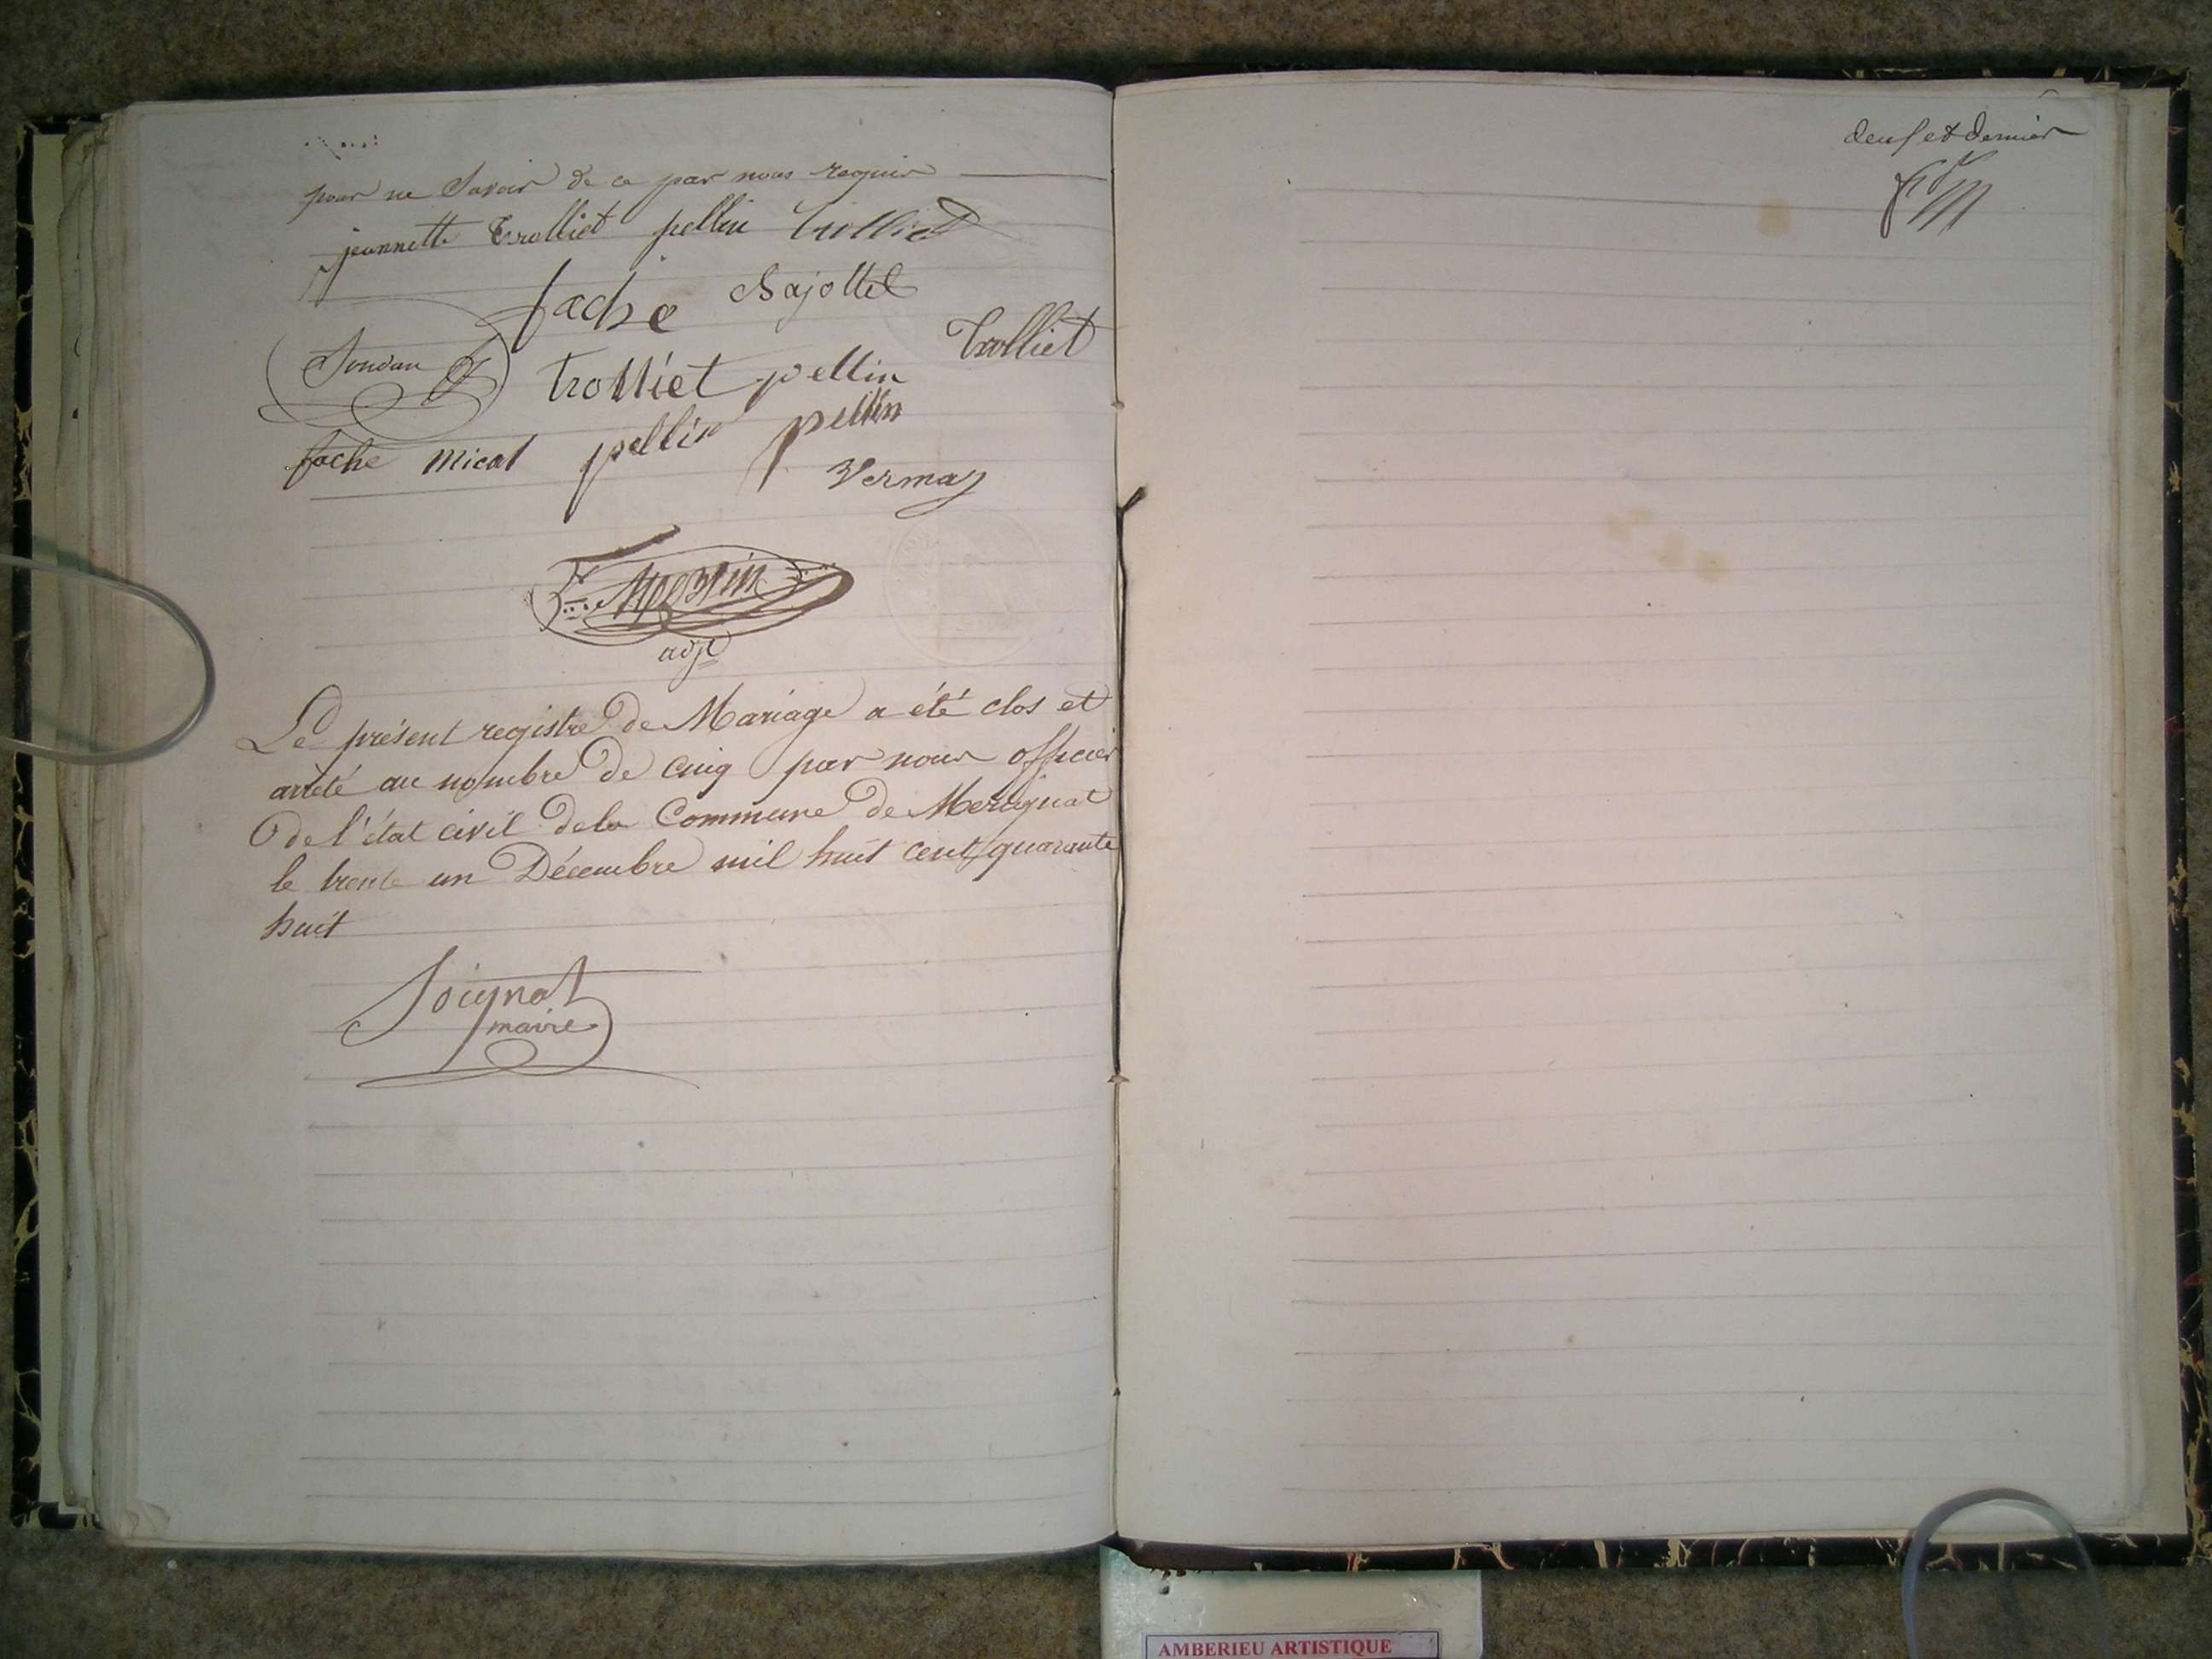 pour ne Savoir de ce par nous requis
jeannette Trolliet pellin Trolliet
fache Sajottel
Trolliet
Joudan trolliet pellin
fache micat pellin pellin
Vermay
adjt
Le présent registre de Mariage a été clos et
arrêté au nombre de cinq par nous officier
de l'état civil de la Commune de Merignat
le trente un Décembre mil huit cent quarante
huit
Joignat
maire
deuf et dernier
AMBERIEU ARTISTIQUE